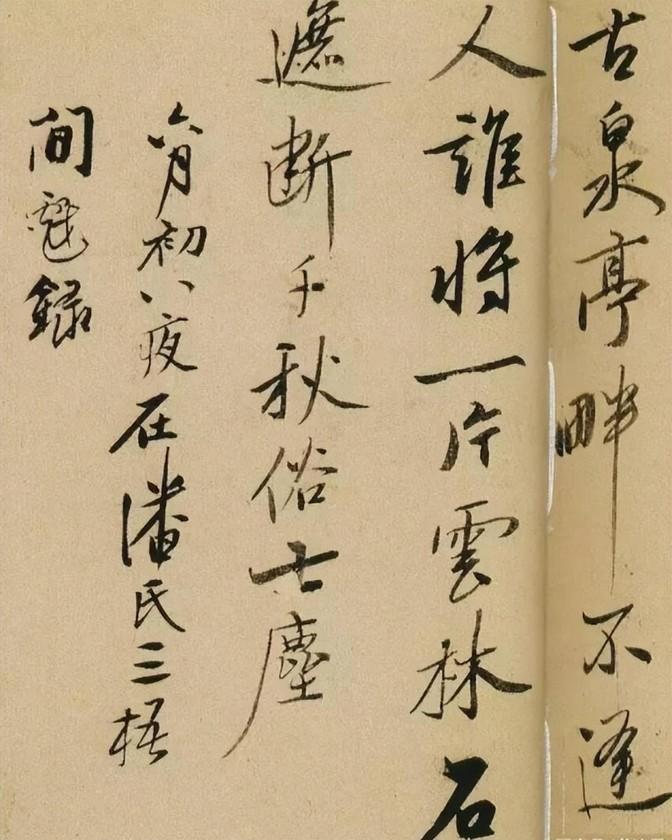 古泉亭畔不逢
人誰將一片雲林石
遮斷千秋俗士塵
六月初八夜在潘氏三梧
間戲錄